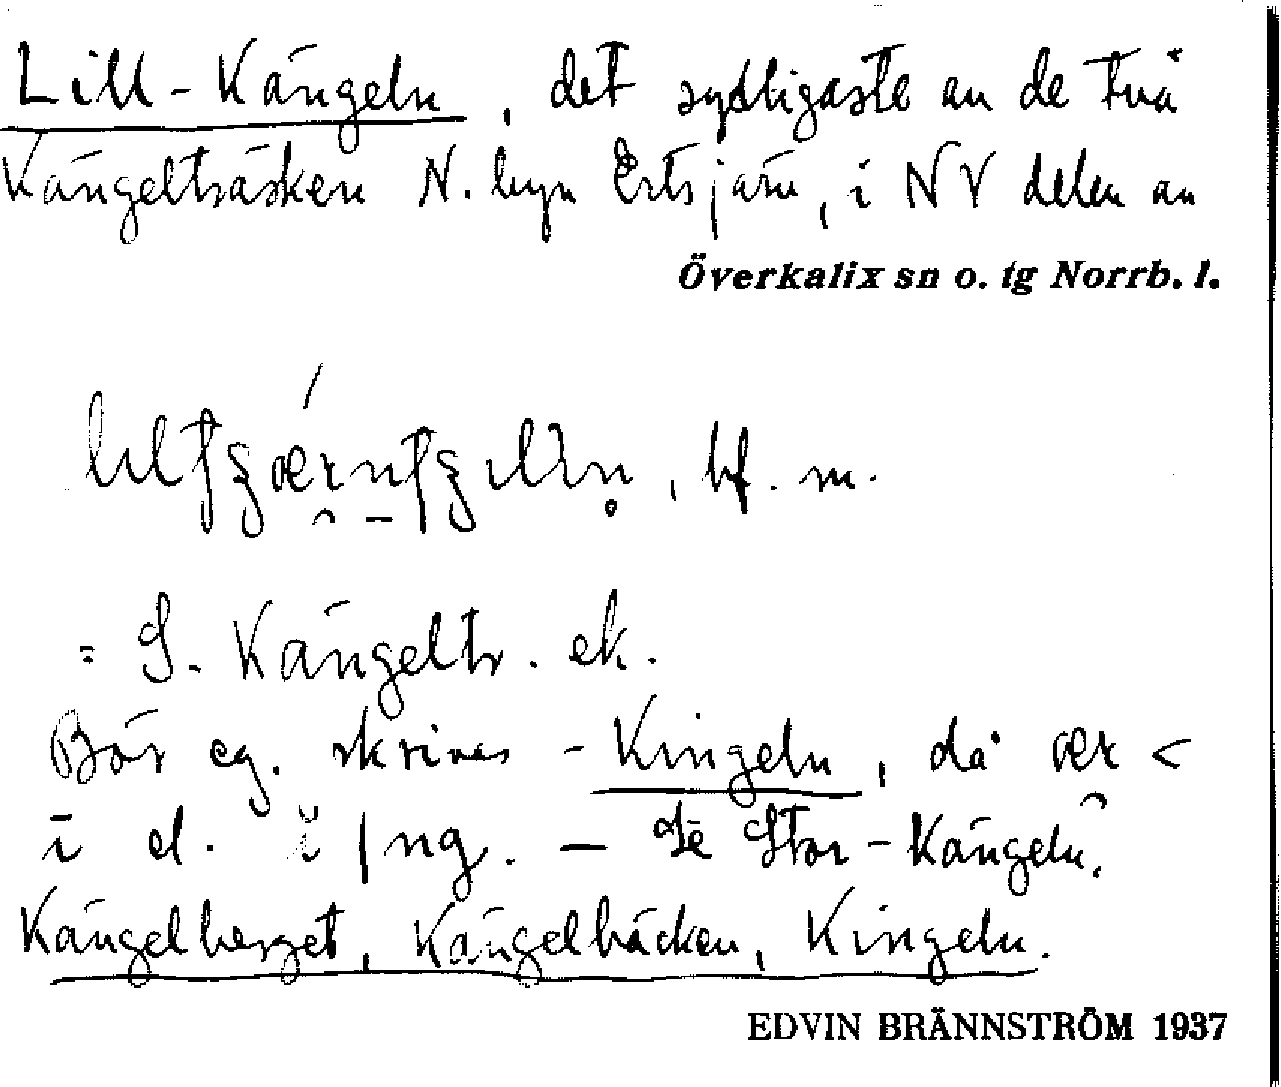 Lill-Kängeln, det sydligaste av de två
Kängelträsken N. byn Ertsjärv, i NV delen av
Överkalix sn o. tg Norrb. l.
, bf. m.
= S. Kängeltr. ek.
Bör eg. skrivas -Kingeln, då <
ī el. ĭ / ng. — Se Stor-Kängeln,
Kängelberget, Kängelbäcken, Kingeln.
EDVIN BRÄNNSTRÖM 1937